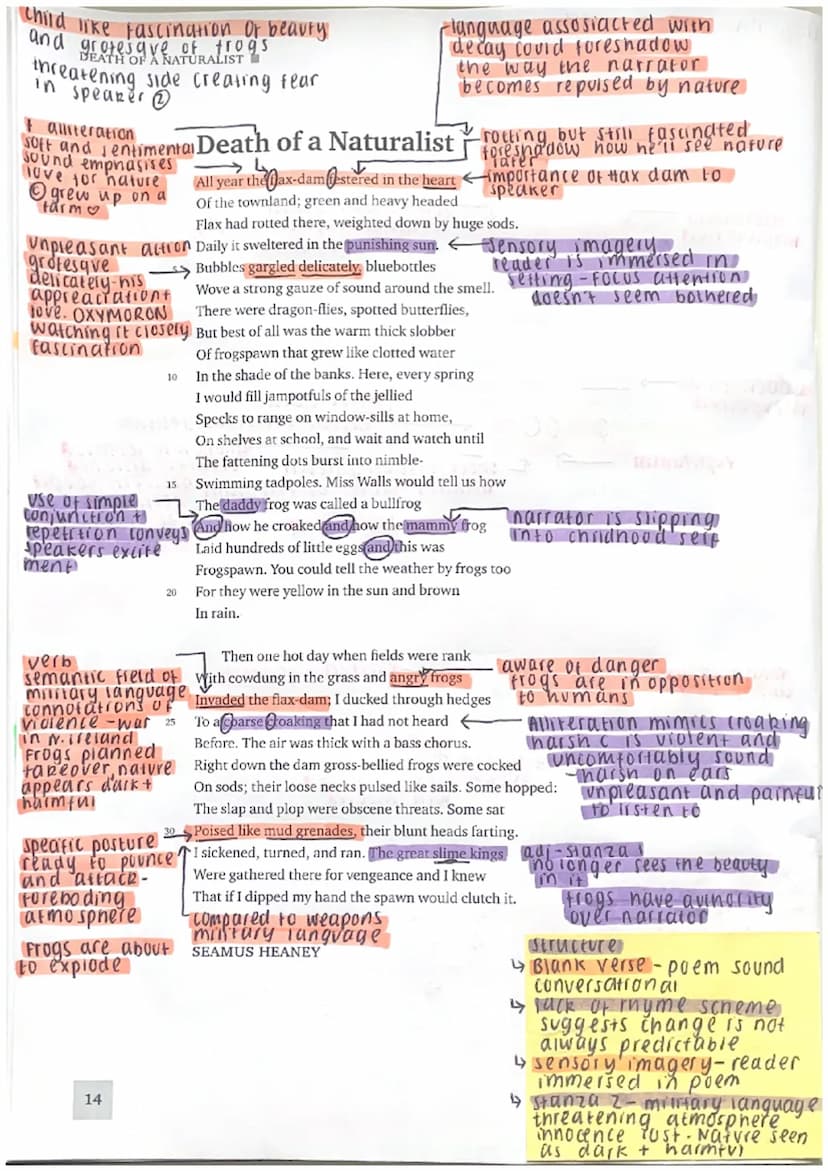 child like fascination of beauty
and grotesque of frogs
DEATH OF A NATURALIST
threatening side creating fear
in speaker ②
language assosiacted with
decay could foreshadow
the way the narrator
becomes repulsed by nature
alliteration
soft and sentimental
sound emphasises
love for nature
© grew up on a
farm ♡
Death of a Naturalist
rotting but still fascinated
foreshadow how he'll see nature
later
importance of flax dam to
speaker
All year the flax-dam festered in the heart
Of the townland; green and heavy headed
Flax had rotted there, weighted down by huge sods.
Daily it sweltered in the punishing sun.
Bubbles gargled delicately, bluebottles
Wove a strong gauze of sound around the smell.
There were dragon-flies, spotted butterflies,
But best of all was the warm thick slobber
Of frogspawn that grew like clotted water
10 In the shade of the banks. Here, every spring
I would fill jampotfuls of the jellied
Specks to range on window-sills at home,
On shelves at school, and wait and watch until
The fattening dots burst into nimble-
15 Swimming tadpoles. Miss Walls would tell us how
The daddy frog was called a bullfrog
And how he croaked and how the mammy frog
Laid hundreds of little eggs and this was
Frogspawn. You could tell the weather by frogs too
20 For they were yellow in the sun and brown
In rain.
unpleasant action
grotesque
delicately-his
appreaciation+
love. OXYMORON
watching it closely
fascination
sensory imagery
reader is immersed in
setting - focus attention
doesn't seem bothered
use of simple
conjunction +
repetition conveys
speakers excite
ment
narrator is slipping
into childhood self
Then one hot day when fields were rank
With cowdung in the grass and angry frogs
Invaded the flax-dam; I ducked through hedges
25 To a coarse croaking that I had not heard
Before. The air was thick with a bass chorus.
Right down the dam gross-bellied frogs were cocked
On sods; their loose necks pulsed like sails. Some hopped:
The slap and plop were obscene threats. Some sat
30 Poised like mud grenades, their blunt heads farting.
I sickened, turned, and ran. The great slime kings
Were gathered there for vengeance and I knew
That if I dipped my hand the spawn would clutch it.
verb
semantic field of
military language
connotations of
violence - war
in N. ireland
Frogs planned
takeover, nature
appears dark +
harmful
aware of danger
frogs are in opposition
to humans
Alliteration mimics croaking
harsh c is violent and
uncomfortably sound
-harsh on ears
unpleasant and painful
to listen to
specific posture
ready to pounce
and attack-
foreboding
atmosphere
Frogs are about
to explode
adj-stanza 1
no longer sees the beauty
in it
frogs have authority
over narrator
compared to weapons
military language
SEAMUS HEANEY
structure
↳ Blank verse - poem sound
conversational
↳ lack of rhyme scheme
suggests change is not
always predictable
↳ sensory imagery - reader
immersed in poem
↳ stanza 2 - military language
threatening atmosphere
innocence lost. Nature seen
as dark + harmful
14